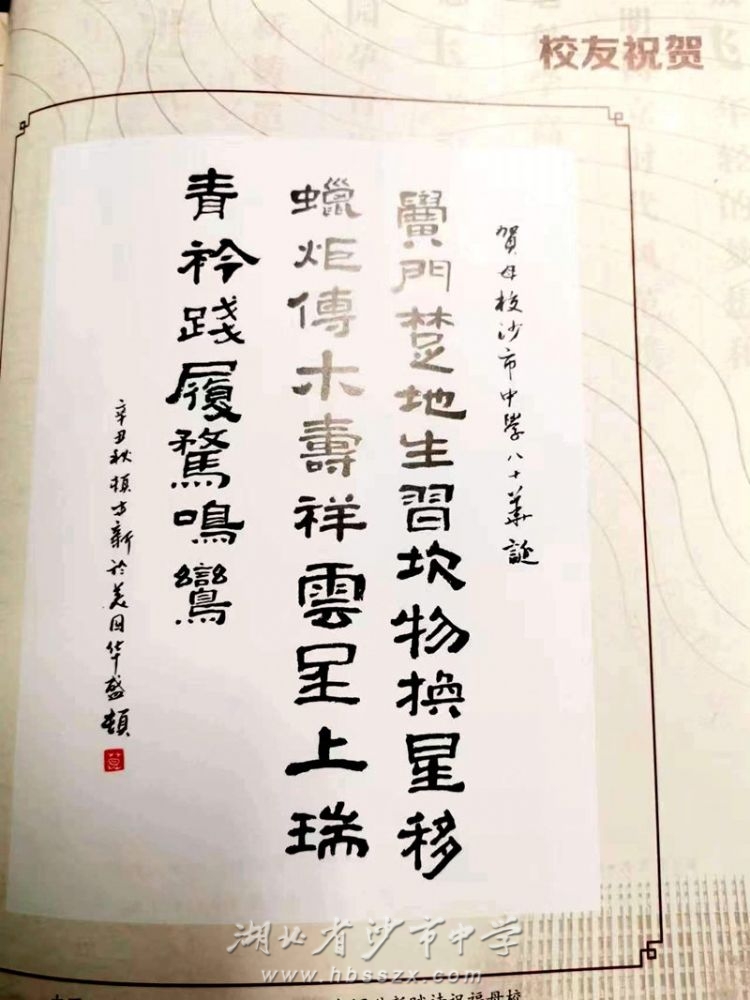 校友祝贺
賀母校沙市中學八十華誕
黌門楚地生習坎物換星移
蠟炬傳木壽祥雲呈上瑞
青衿踐履騖鳴鸞
辛丑秋方新於美国华盛頓
湖北省沙市中学
www.hbsszx.com
赋诗祝福母校